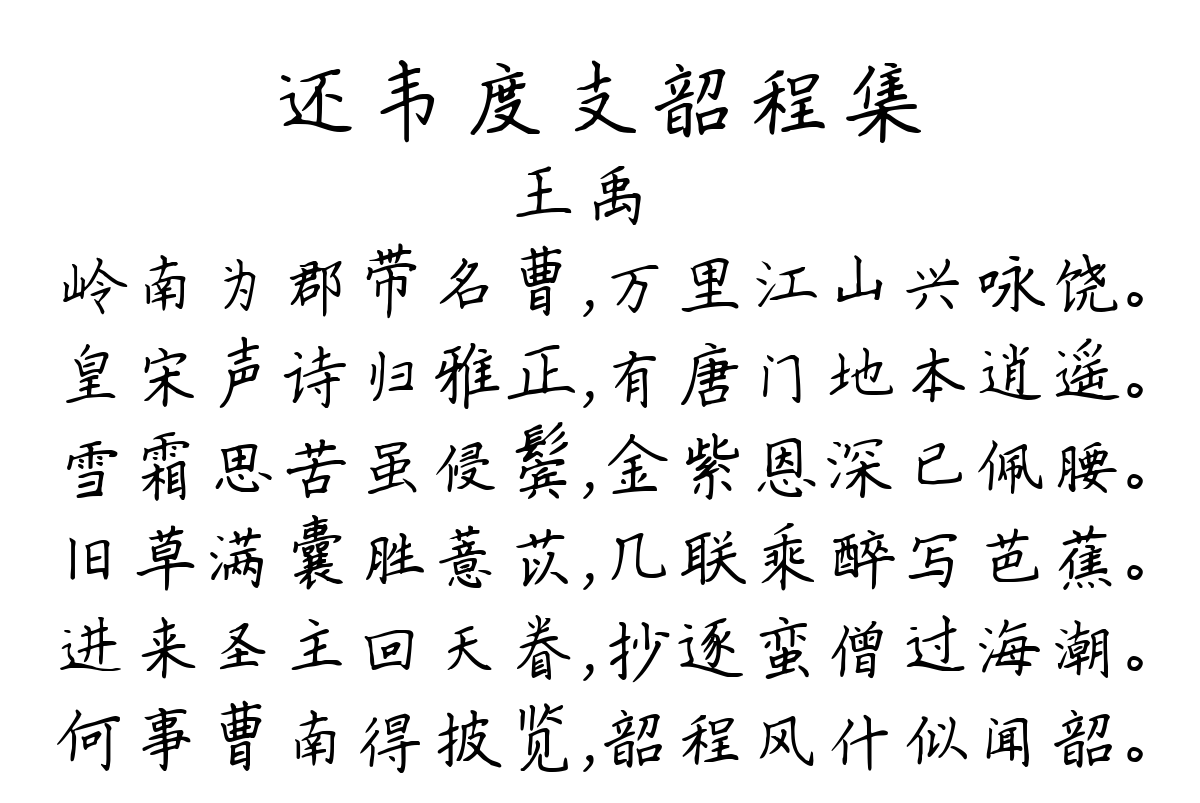 还韦度支韶程集
王禹
岭南为郡带名曹,万里江山兴咏饶。
皇宋声诗归雅正,有唐门地本逍遥。
雪霜思苦虽侵鬓,金紫恩深已佩腰。
旧草满囊胜薏苡,几联乘醉写芭蕉。
进来圣主回天眷,抄逐蛮僧过海潮。
何事曹南得披览,韶程风什似闻韶。